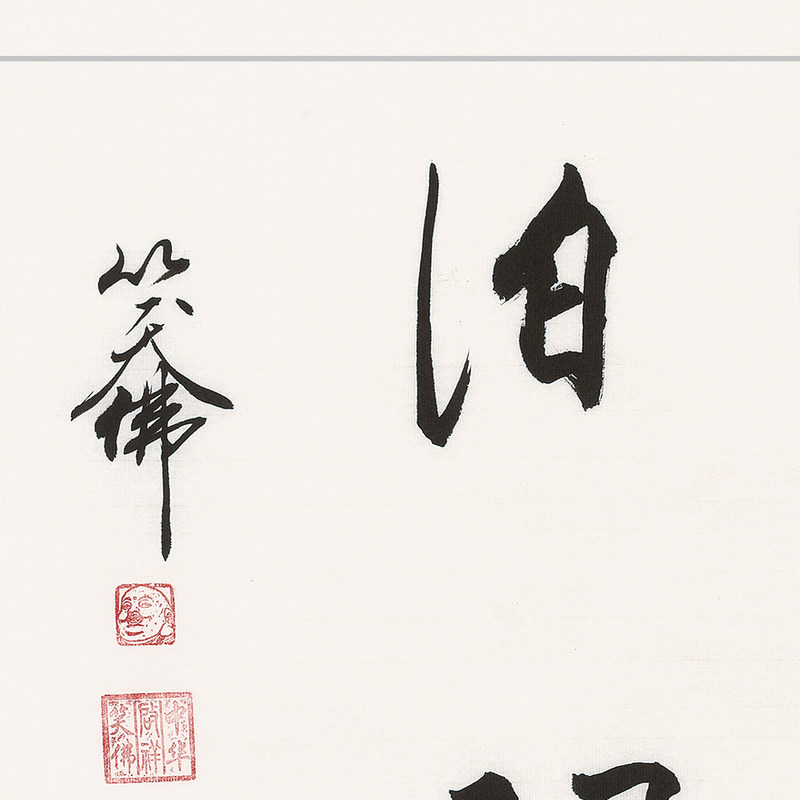 泊
笑佛
中华
祥
笑佛